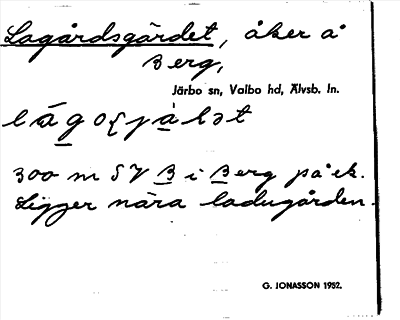 Lagårdsgärdet, åker å
Berg,
Järbo sn, Valbo hd, Älvsb. ln.
300 m SV B i Berg på ek.
Ligger nära ladugården.
G. JONASSON 1952.